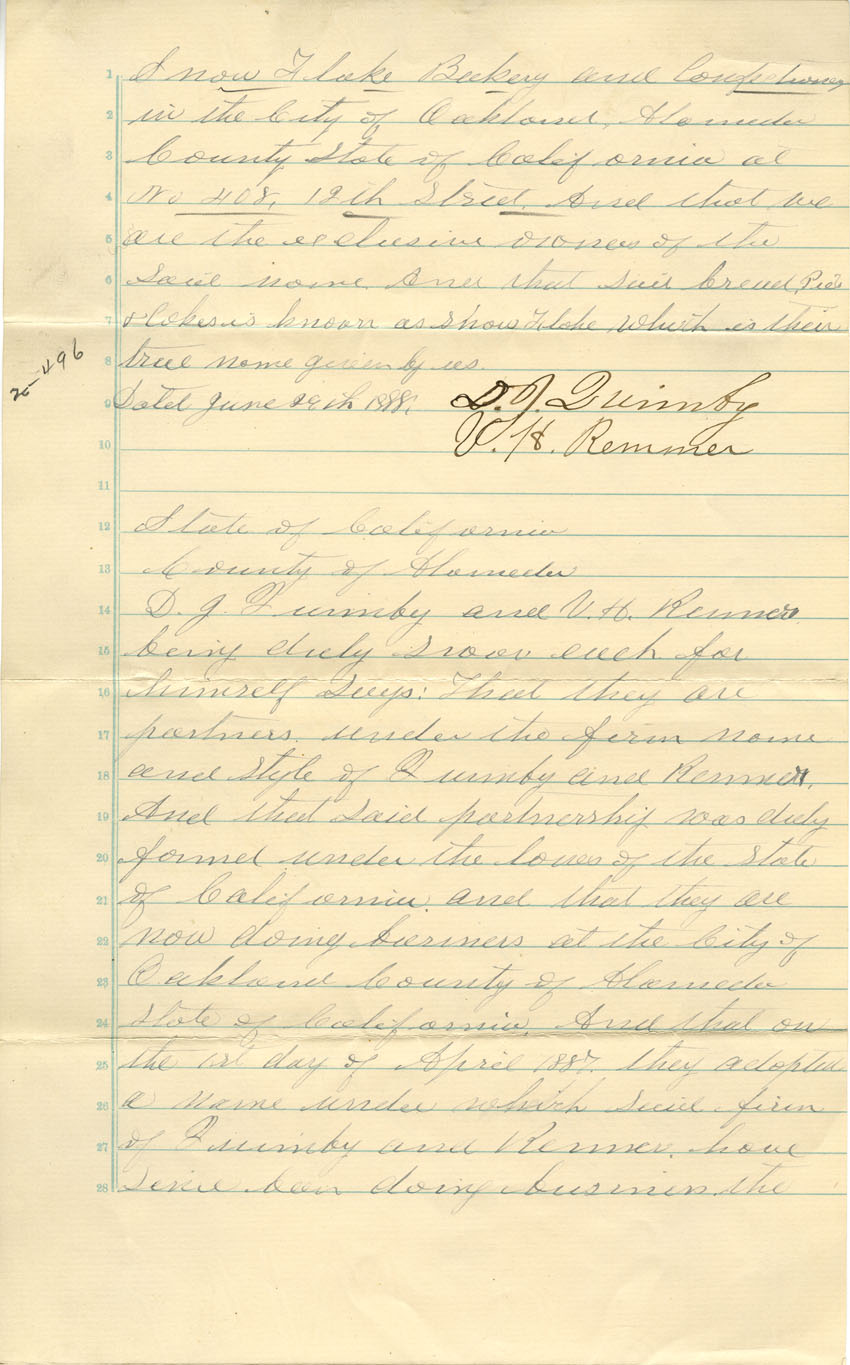 Snow Flake Bakery and Confectionery
in the City of Oakland, Alameda
County State of California at
No 408, 12th Street. And that we
are the exclusive owners of the
Said name. And that said bread, Pies
& Cakes is known as Snow Flake which is their
true name given by us.
25-496
Dated June 29th 1888.
D. J. Quimby
V. H. Remmer
State of California
County of Alameda
D. J. Quimby and V. H. Remmer
being duly sworn each for
himself Says: That they are
partners under the firm name
and Style of Quimby and Remmer,
And that Said partnership was duly
formed under the laws of the State
of California and that they are
now doing business at the City of
Oakland County of Alameda
State of California, And that on
the 1st day of April 1887. they adopted
a name under which said firm
of Quimby and Remmer. have
Since been doing business. the
1
2
3
4
5
6
7
8
9
10
11
12
13
14
15
16
17
18
19
20
21
22
23
24
25
26
27
28